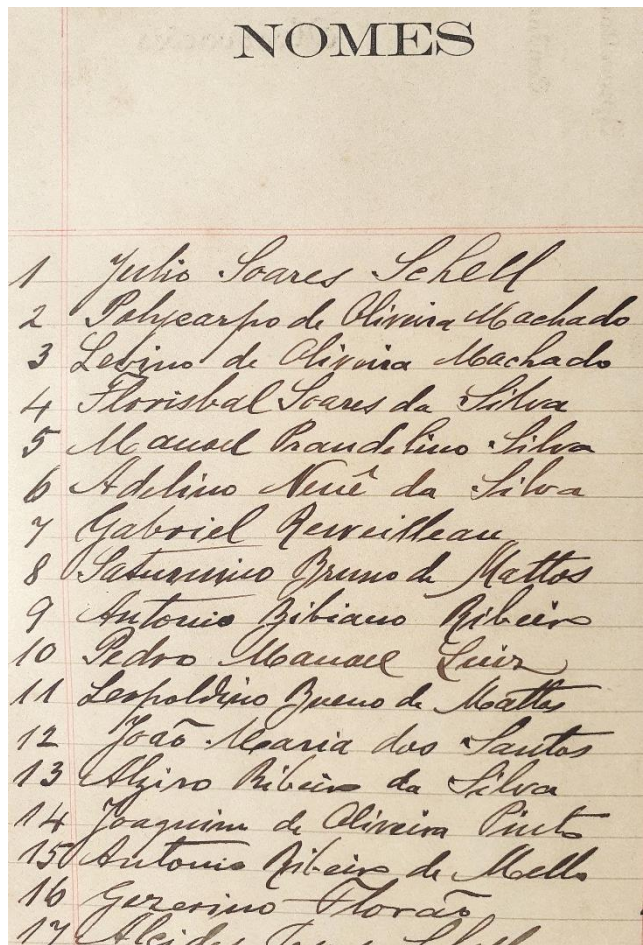 NOMES
1 Julio Soares Schell
2 Polycarpo de Oliveira Machado
3 Lebino de Oliveira Machado
4 Florisbal Soares da Silva
5 Manoel Prandelino Silva
6 Adelino Nenê da Silva
7 Gabriel Reveilleau
8 Saturnino Bruno de Mattos
9 Antonio Bibiano Ribeiro
10 Pedro Manoel Luiz
11 Leopoldino Bueno de Mattos
12 João Maria dos Santos
13 Alziro Ribeiro da Silva
14 Joaquim de Oliveira Pinto
15 Antonio Ribeiro de Mello
16 Gezerino Florão
17